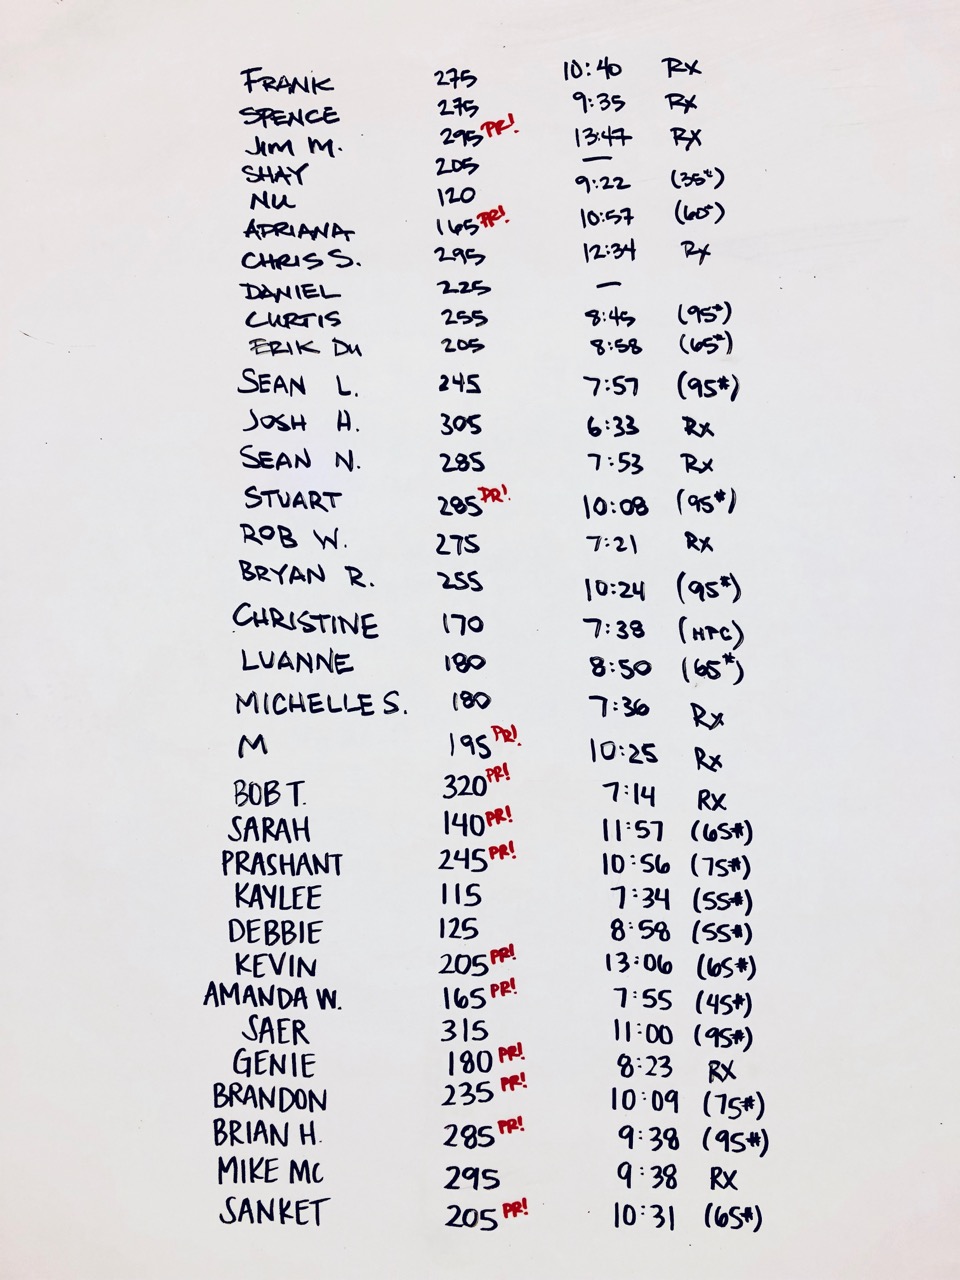 FRANK 275 10:40 Rx
SPENCE 275 9:35 Rx
JIM M. 295 PR! 13:47 Rx
SHAY 205 —
NU 120 9:22 (35#)
ADRIANA 165 PR! 10:57 (60#)
CHRIS S. 295 12:34 Rx
DANIEL 225 —
CURTIS 255 8:45 (95#)
ERIK DU 205 8:58 (65#)
SEAN L. 245 7:57 (95#)
JOSH H. 305 6:33 Rx
SEAN N. 285 7:53 Rx
STUART 285 PR! 10:08 (95#)
ROB W. 275 7:21 Rx
BRYAN R. 255 10:24 (95#)
CHRISTINE 170 7:38 (HPC)
LUANNE 180 8:50 (65#)
MICHELLE S. 180 7:36 Rx
M 195 PR! 10:25 Rx
BOB T. 320 PR! 7:14 RX
SARAH 140 PR! 11:57 (65#)
PRASHANT 245 PR! 10:56 (75#)
KAYLEE 115 7:34 (55#)
DEBBIE 125 8:58 (55#)
KEVIN 205 PR! 13:06 (65#)
AMANDA W. 165 PR! 7:55 (45#)
SAER 315 11:00 (95#)
GENIE 180 PR! 8:23 RX
BRANDON 235 PR! 10:09 (75#)
BRIAN H. 285 PR! 9:38 (95#)
MIKE MC 295 9:38 RX
SANKET 205 PR! 10:31 (65#)